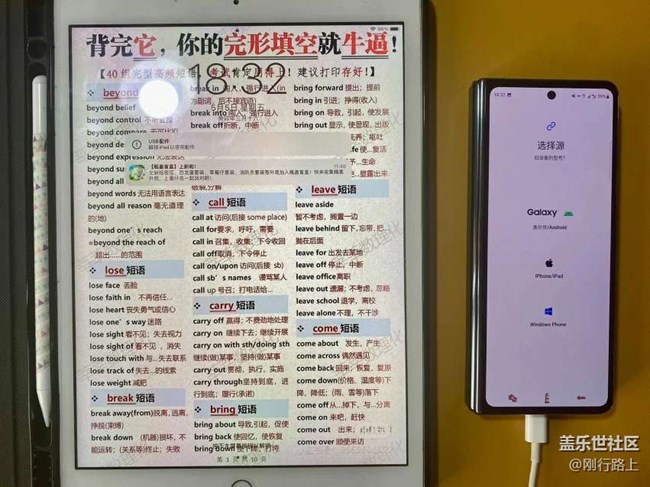 背完它，你的完形填空就牛逼！
【40组完型高频短语，考试肯定用得上！建议打印存好！】
18:22
6月6日 星期五
USB配件
解锁iPad以使用配件
beyond
beyond belief
beyond control
beyond words 无法用语言表达
beyond all reason 毫无道理
的(地)
beyond one's reach
=beyond the reach of
超出……的范围
lose 短语
lose face 丢脸
lose faith in 不再信任…
lose heart 丧失勇气或信心
lose one's way 迷路
lose sight 看不见；失去视力
lose sight of 看不见，消失
lose touch with 与…失去联系
lose track of 失去…的线索
lose weight 减肥
break 短语
break away(from)脱离,逃离,
挣脱(束缚)
break down (机器)损坏,不
能运转；(关系等)终止；失败
break into
break off 折断，中断
call 短语
call at 访问(后接 some place)
call for 要求，呼吁，需要
call in 召集，收集；下令收回
call off 取消，下令停止
call on/upon 访问(后接 sb)
call sb's names 谩骂某人
call up 号召；打电话给…
carry 短语
carry off 赢得；不费劲地处理
carry on 继续下去；继续开展
carry on with sth/doing sth
继续(做)某事；坚持(做)某事
carry out 贯彻，执行，实施
carry through 坚持到底，进
行到底；履行(承诺)
bring 短语
bring about 导致,引起，促使
bring back 使回忆，使恢复
bring down
第 1 页 共 10 页
bring forward 提出；提前
bring in 引进；挣得(收入)
bring on 导致，引起，使发展
bring out 显示，使显现，出版
leave 短语
leave aside
暂不考虑，搁置一边
leave behind 留下,忘带,把
抛在后面
leave for 出发去某地
leave off 停止，中断
leave office 离职
leave out 遗漏；不考虑，忽略
leave school 退学，离校
leave alone 不理，不干涉
come 短语
come about 发生，产生
come across 偶然遇见
come back 回来；恢复，复原
come down(价格、温度等)下
降，降低；(雨、雪等)落下
come off 从…掉下，与…分离
come on 来吧，赶快
come out 出来；
come over 顺便来访
选择源
旧设备的型号?
Galaxy
盖乐世/Android
iPhone/iPad
Windows Phone
盖乐世社区
@刚行路上